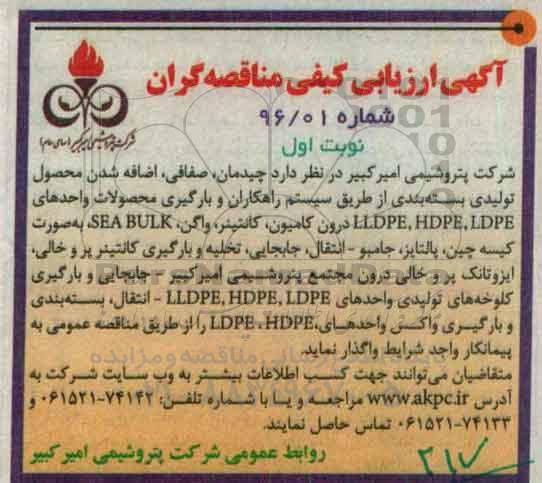 آگهی ارزیابی کیفی مناقصه‌گران
شماره ۹۶/۰۱
نوبت اول
شرکت پتروشیمی امیرکبیر (سهامی عام)
شرکت پتروشیمی امیرکبیر در نظر دارد چیدمان، صفافی، اضافه شدن محصول
تولیدی بسته‌بندی از طریق سیستم راهکاران و بارگیری محصولات واحدهای
LLDPE, HDPE, LDPE درون کامیون، کانتینر، واگن، SEA BULK، به‌صورت
کیسه چین، پالتایز، جامبو - انتقال، جابجایی، تخلیه و بارگیری کانتینر پر و خالی،
ایزوتانک پر و خالی درون مجتمع پتروشیمی امیرکبیر - جابجایی و بارگیری
کلوخه‌های تولیدی واحدهای LLDPE, HDPE, LDPE - انتقال، بسته‌بندی
و بارگیری واکس واحدهای LDPE، HDPE، را از طریق مناقصه عمومی به
پیمانکار واجد شرایط واگذار نماید.
متقاضیان می‌توانند جهت کسب اطلاعات بیشتر به وب سایت شرکت به
آدرس www.akpc.ir مراجعه و یا با شماره تلفن: ۷۴۱۴۲-۰۶۱۵۲۱ و
۷۴۱۳۳-۰۶۱۵۲۱ تماس حاصل نمایند.
روابط عمومی شرکت پتروشیمی امیرکبیر
۲۱۷